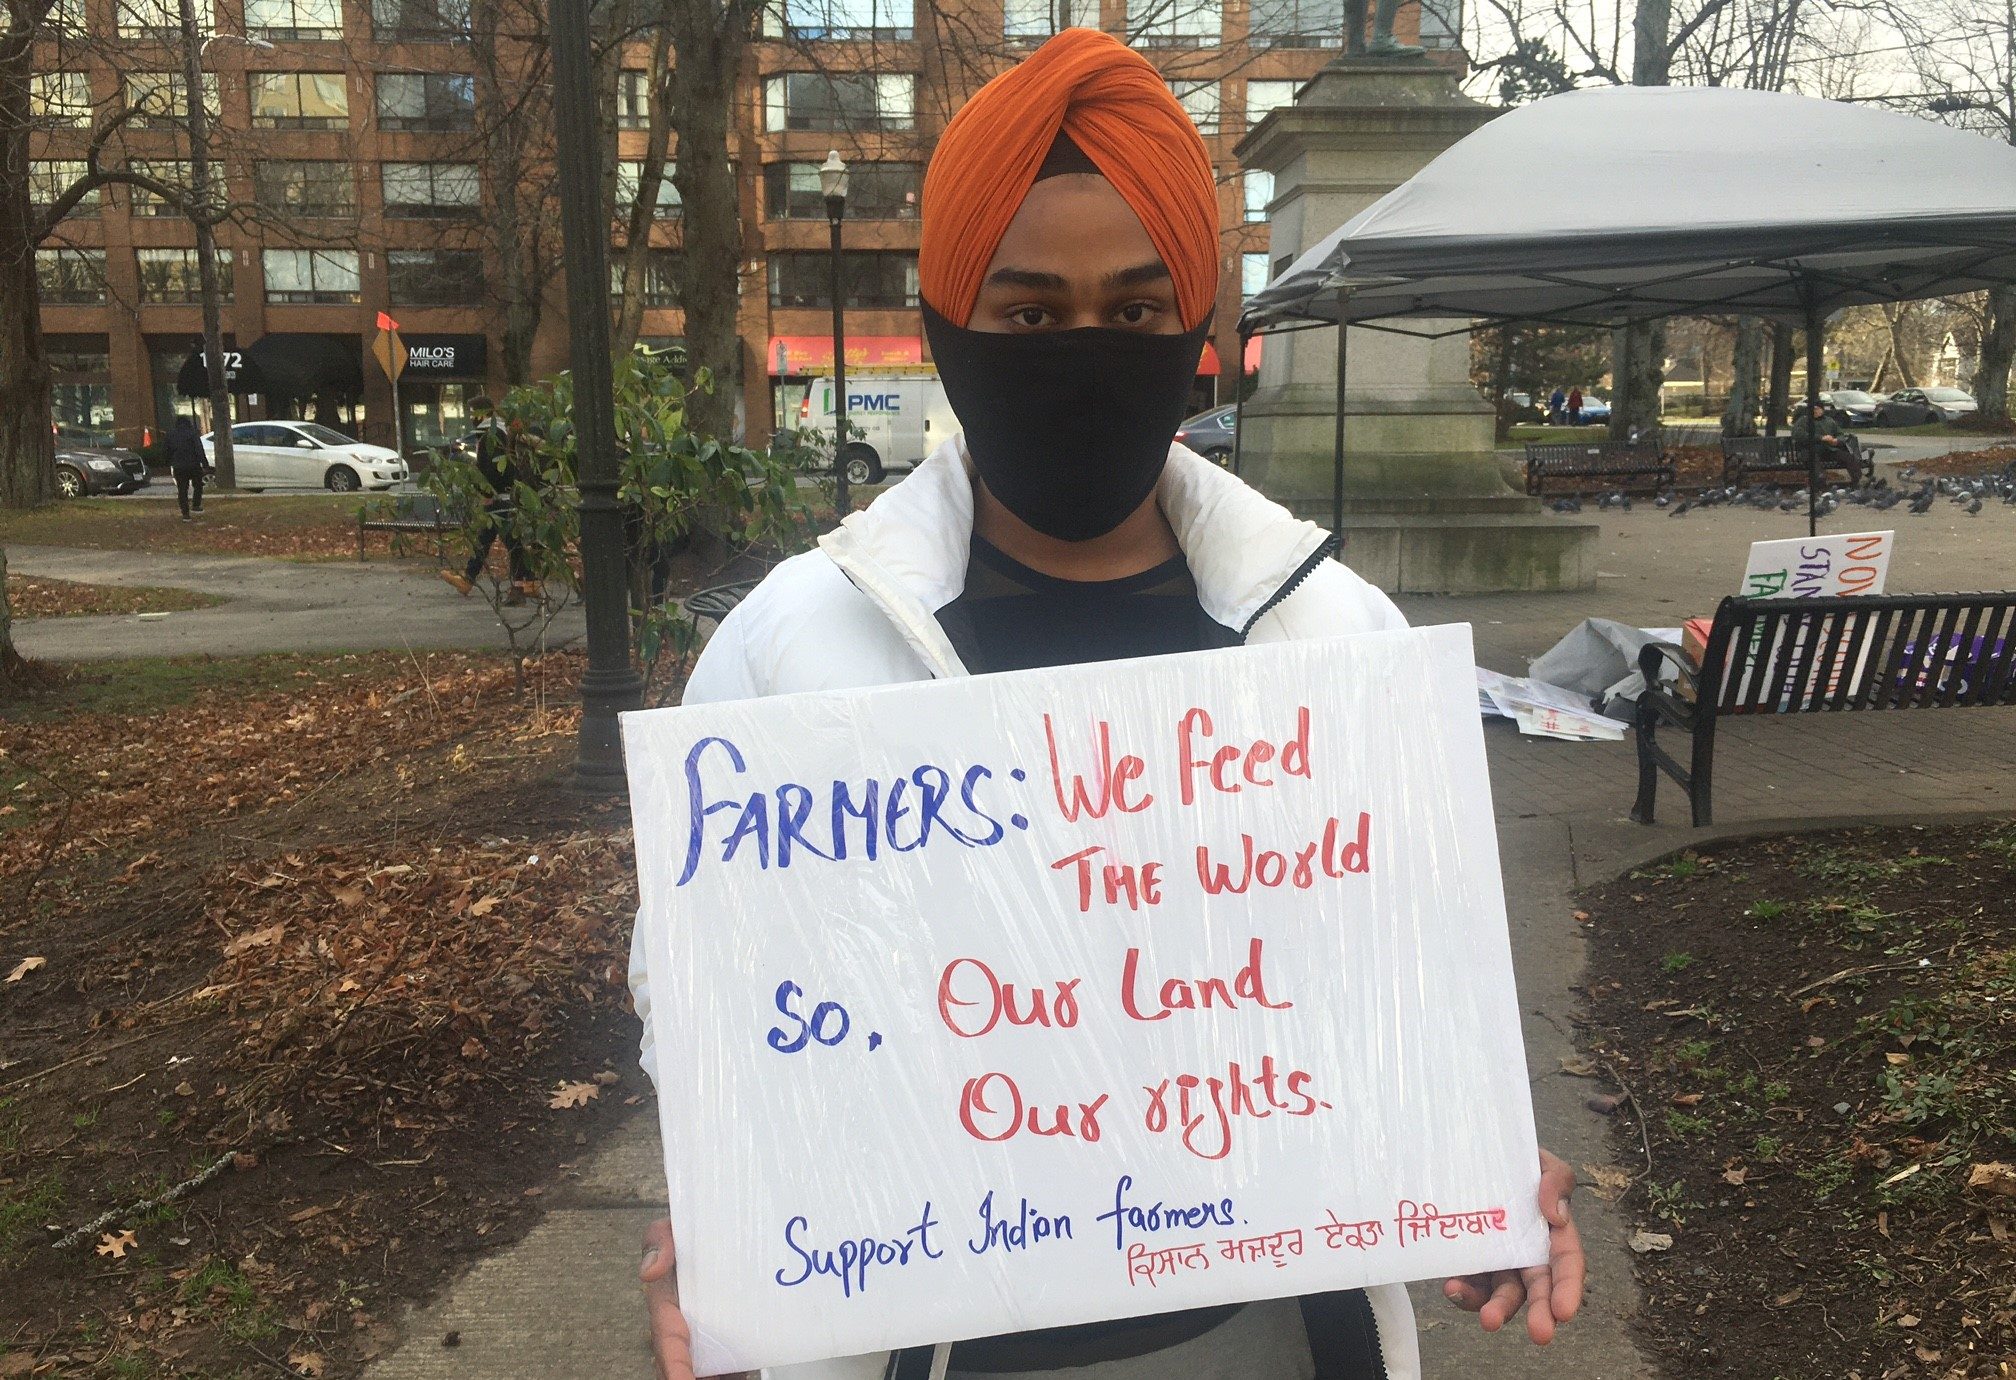 1872
MILO'S
HAIR CARE
PMC
FARMERS: We feed
THE World
So. Our Land
Our rights.
Support Indian farmers.
ਕਿਸਾਨ ਮਜ਼ਦੂਰ ਏਕਤਾ ਜ਼ਿੰਦਾਬਾਦ
NOV
STAN
FA